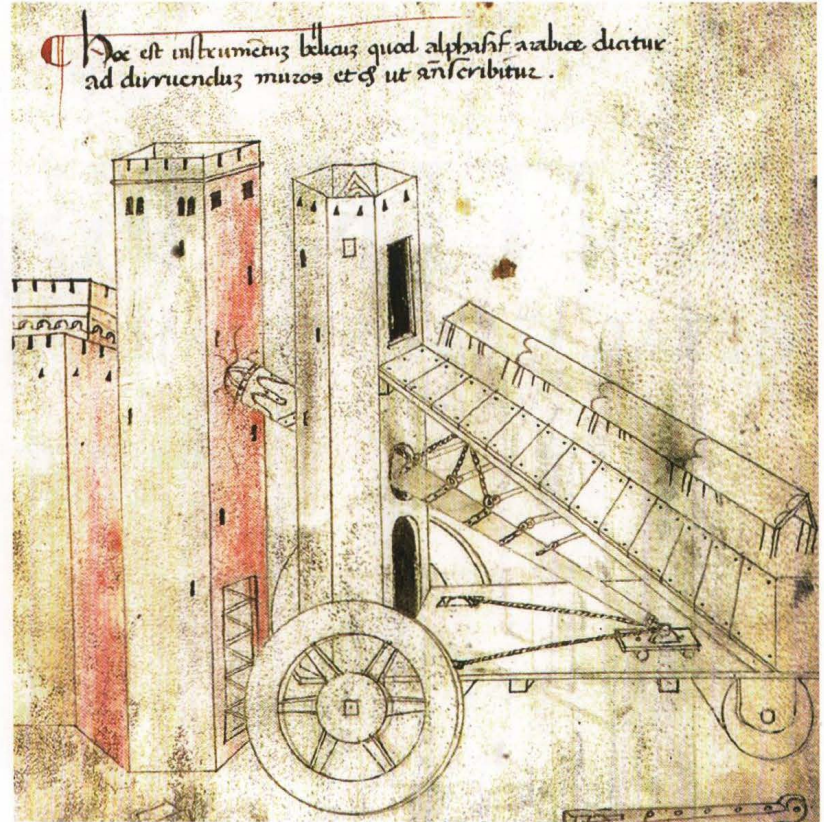 Hoc est instrumētuʒ bēlicuʒ quod alphasaf arabice dicitur
ad dirruenduʒ muros et ut scribitur .